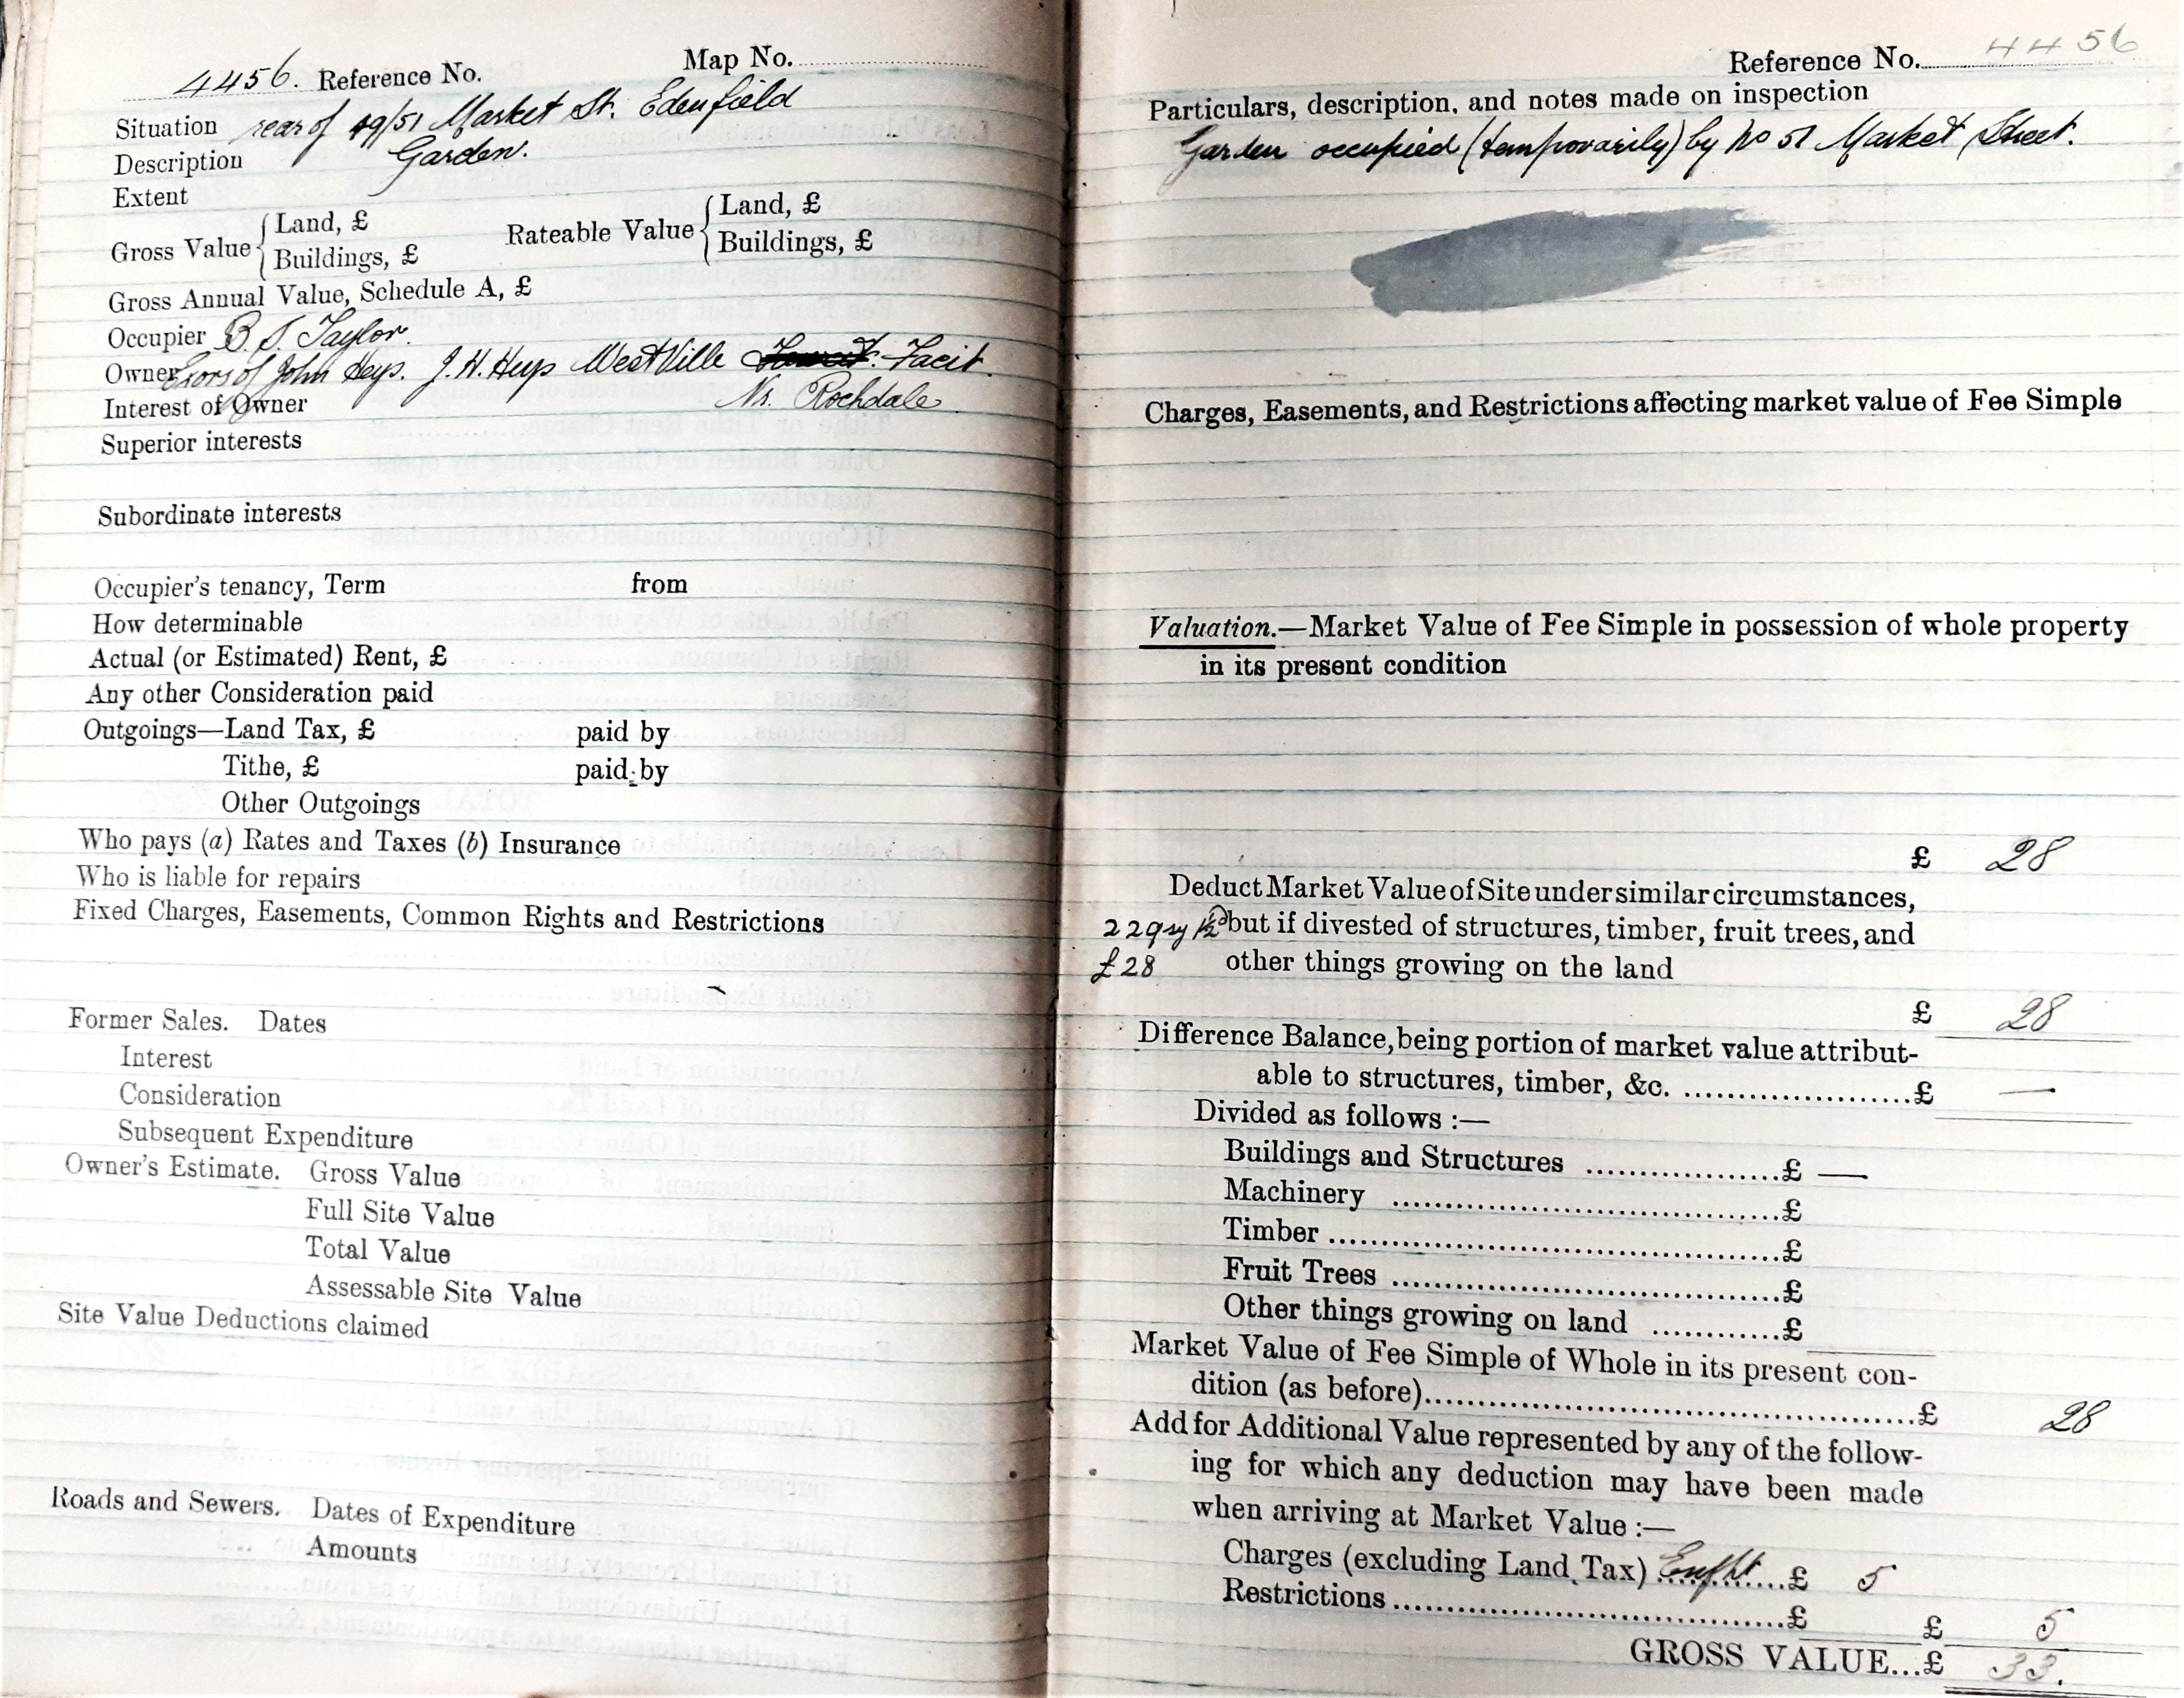 4456. Reference No. Map No.
Situation rear of 49/51 Market St. Edenfield
Description Garden.
Extent
Gross Value { Land, £ Rateable Value { Land, £
Buildings, £ Buildings, £
Gross Annual Value, Schedule A, £
Occupier B. S. Taylor.
Owner Exors of John Heys. J. H. Heys West Ville Facit.
Interest of Owner Nr. Rochdale
Superior interests
Subordinate interests
Occupier's tenancy, Term from
How determinable
Actual (or Estimated) Rent, £
Any other Consideration paid
Outgoings—Land Tax, £ paid by
Tithe, £ paid by
Other Outgoings
Who pays (a) Rates and Taxes (b) Insurance
Who is liable for repairs
Fixed Charges, Easements, Common Rights and Restrictions
Former Sales. Dates
Interest
Consideration
Subsequent Expenditure
Owner's Estimate. Gross Value
Full Site Value
Total Value
Assessable Site Value
Site Value Deductions claimed
Roads and Sewers. Dates of Expenditure
Amounts
Reference No. 4456
Particulars, description, and notes made on inspection
Garden occupied (temporarily) by No 51 Market Street.
Charges, Easements, and Restrictions affecting market value of Fee Simple
Valuation.—Market Value of Fee Simple in possession of whole property
in its present condition
£ 28
Deduct Market Value of Site under similar circumstances,
229 sy but if divested of structures, timber, fruit trees, and
£28 other things growing on the land
£ 28
Difference Balance, being portion of market value attribut-
able to structures, timber, &c. ....................£ —
Divided as follows :—
Buildings and Structures ....................£ —
Machinery ....................£
Timber ....................£
Fruit Trees ....................£
Other things growing on land ............£
Market Value of Fee Simple of Whole in its present con-
dition (as before)....................£ 28
Add for Additional Value represented by any of the follow-
ing for which any deduction may have been made
when arriving at Market Value :—
Charges (excluding Land Tax) ............£ 5
Restrictions ....................£
£ 5
GROSS VALUE...£ 33.